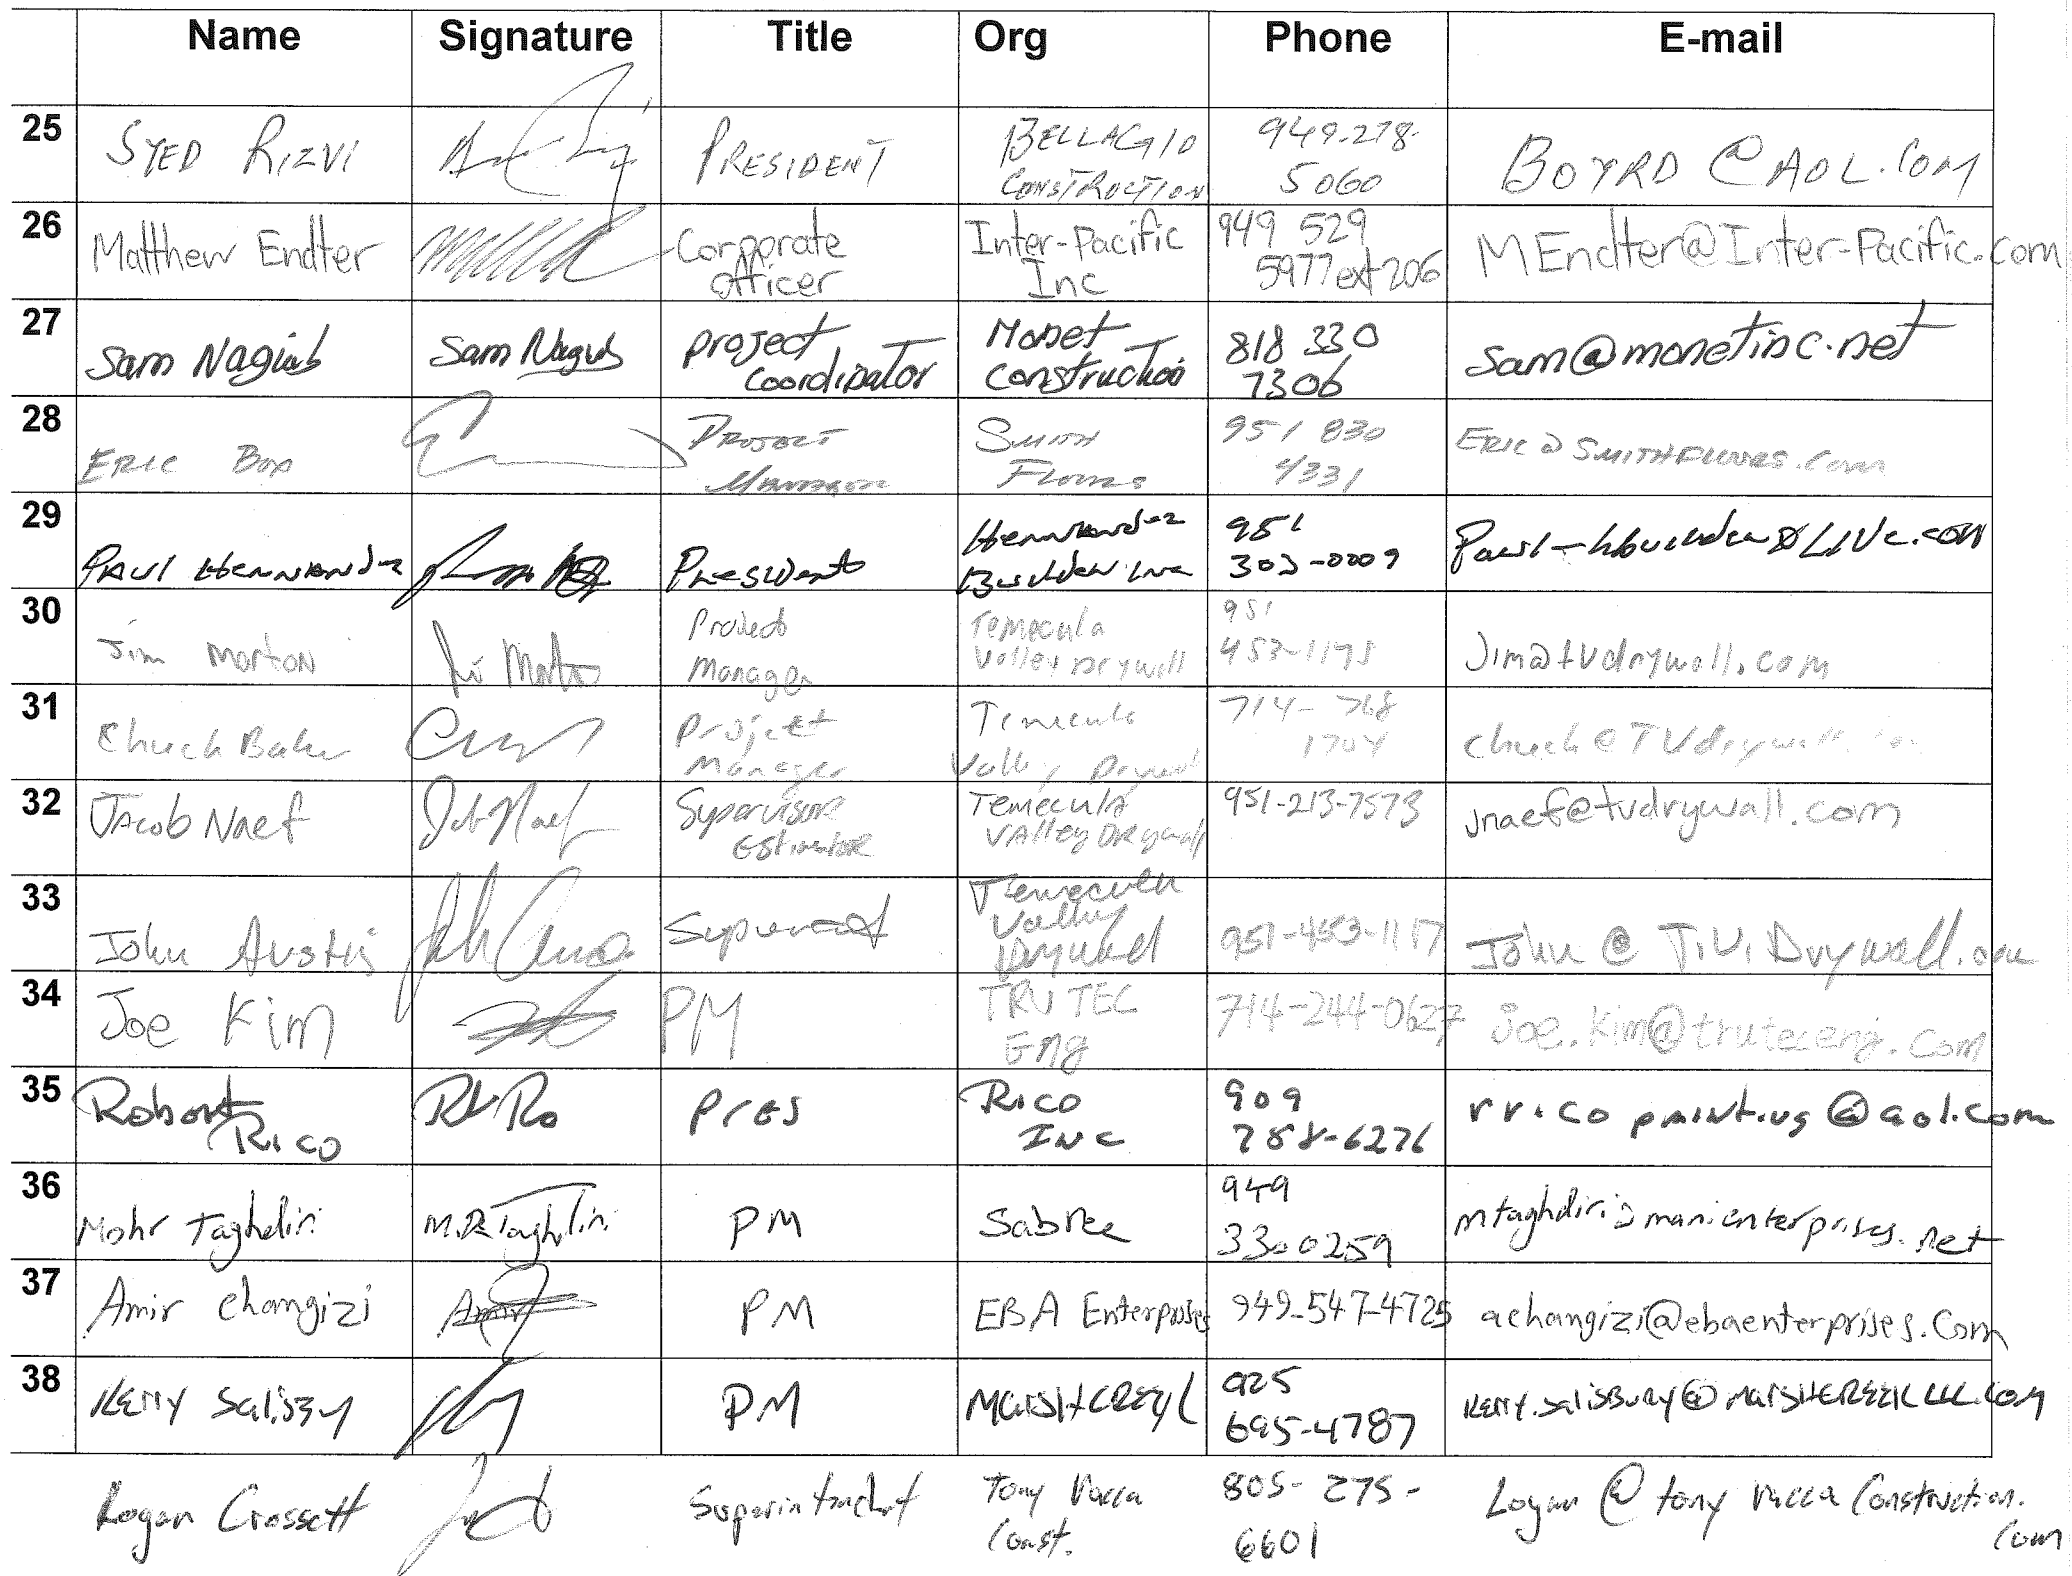 Name Signature Title Org Phone E-mail
25 SYED RIZVI PRESIDENT BELLAGIO CONSTRUCTION 949-278-5060 BOYRD@AOL.COM
26 Matthew Endter Corporate Officer Inter-Pacific Inc 949 529 5977 ext 206 MEndter@Inter-Pacific.com
27 Sam Nagiub Sam Nagub project coordinator Monet construction 818 330 7306 sam@monetinc.net
28 ERIC BOX PROJECT MANAGER SMITH FLOORS 951 830 4331 ERIC@SMITHFLOORS.com
29 PAUL HERNANDEZ PRESIDENT HERNANDEZ Builder INC 951 303-0009
30 Jim Morton Jim Morton Project Manager Temecula Valley Drywall 951 453-1198 Jim@tvdrywall.com
31 Chuck Baker Project Manager Temecula Valley Drywall 714-768 1704 chuck@TVdrywall.com
32 Jacob Naef Supervisor Estimator Temecula Valley Drywall 951-213-7573 jnaef@tvdrywall.com
33 John Austin Temecula Valley Drywall John @ T.V.Drywall.com
34 Joe Kim PM TRUTEC Eng 714-244-0627 joe.kim@truteceng.com
35 Robert Rico Pres Rico INC 909 788-6276 rricopainting@aol.com
36 Mohr Taghdiri M.R.Taghdiri PM Sabree 949 3300259 mtaghdiri@manienterprises.net
37 Amir changizi Amir PM EBA Enterprises 949-547-4725 achangizi@ebaenterprises.com
38 Kerry Salisbury PM MARSHCREEK 925 695-4787 Kerry.Salisbury@MARSHCREEKLLC.com
Logan Crossett Superintendent Tony Vacca Const. 805-275-6601 Logan@tonyvaccaConstruction.com